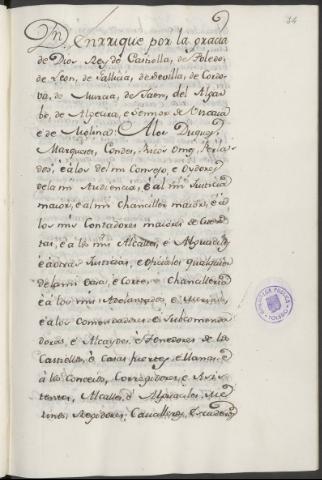 34
Dn. Enrrique por la gracia
de Dios Rey de Castilla, de Toledo,
de Leon, de Gallicia, de Sevilla, de Cordo-
va, de Murcia, de Jaen, del Algar-
be, de Algecira, e Sennor de Vizcaia
e de Molina: A los Duques,
Marqueses, Condes, Ricos Omes, Perla-
dos, é á los del mi Consejo, e Oydores
de la mi Audiencia, é al mi Justicia
maior, é al mi Chanciller maior, é á
los mis Contadores maiores de Cuen-
tas, é á los mis Alcaldes, é Alguaciles
é á otras Justicias, e Oficiales qualesquier
de la mi Casa, e Corte, e Chancilleria
é á los mis Adelantados, e Merinos,
é á los Comendadores, e Subcomenda-
dores, e Alcaydes, e Tenedores de los
Castillos, e Casas fuertes, e llanas, é
á los Concejos, Corregidores, e Asis-
tentes, Alcaldes, é Alguaciles, Me-
rinos, Regidores, Cavalleros, Escuderos
BIBLIOTECA PUBLICA
TOLEDO